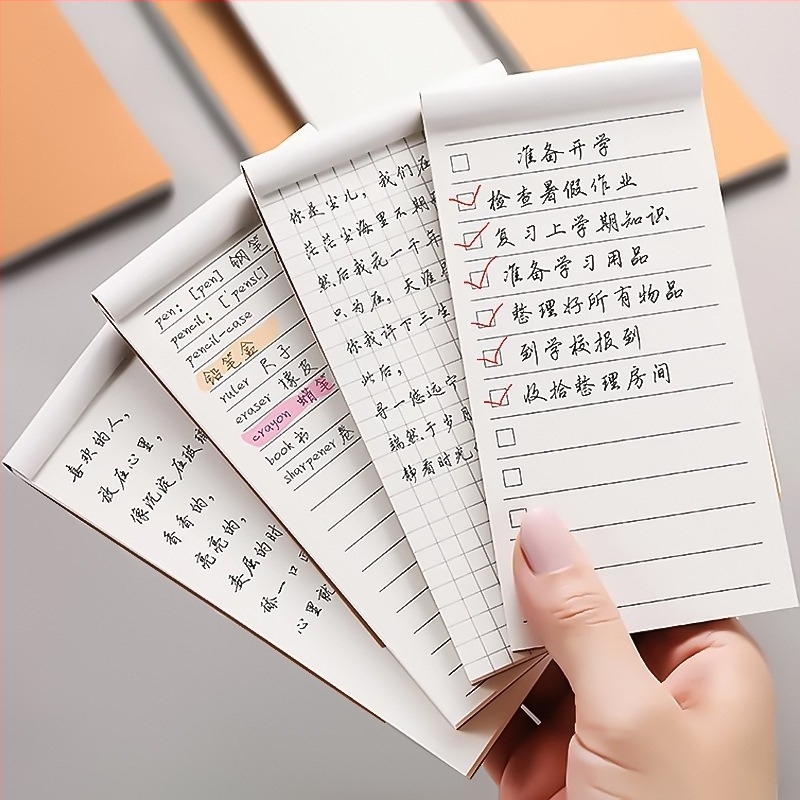 喜欢的人，
放在心里，
像沉淀在玻璃
香香的，
亮亮的，
委屈的时
舔一口
心里就
pen: [pen] 钢笔
pencil: ['pensl]
pencil-case
铅笔盒
ruler 尺子
eraser 橡皮
crayon 蜡笔
book 书
sharpener 卷
你是尘儿，我们在
茫茫尘海里不期
然后我花一千年
只为在，天涯
你我许下三生
此后，
寻一悠远宁
端然于岁月
静看时光
准备开学
检查暑假作业
复习上学期知识
准备学习用品
整理好所有物品
到学校报到
收拾整理房间